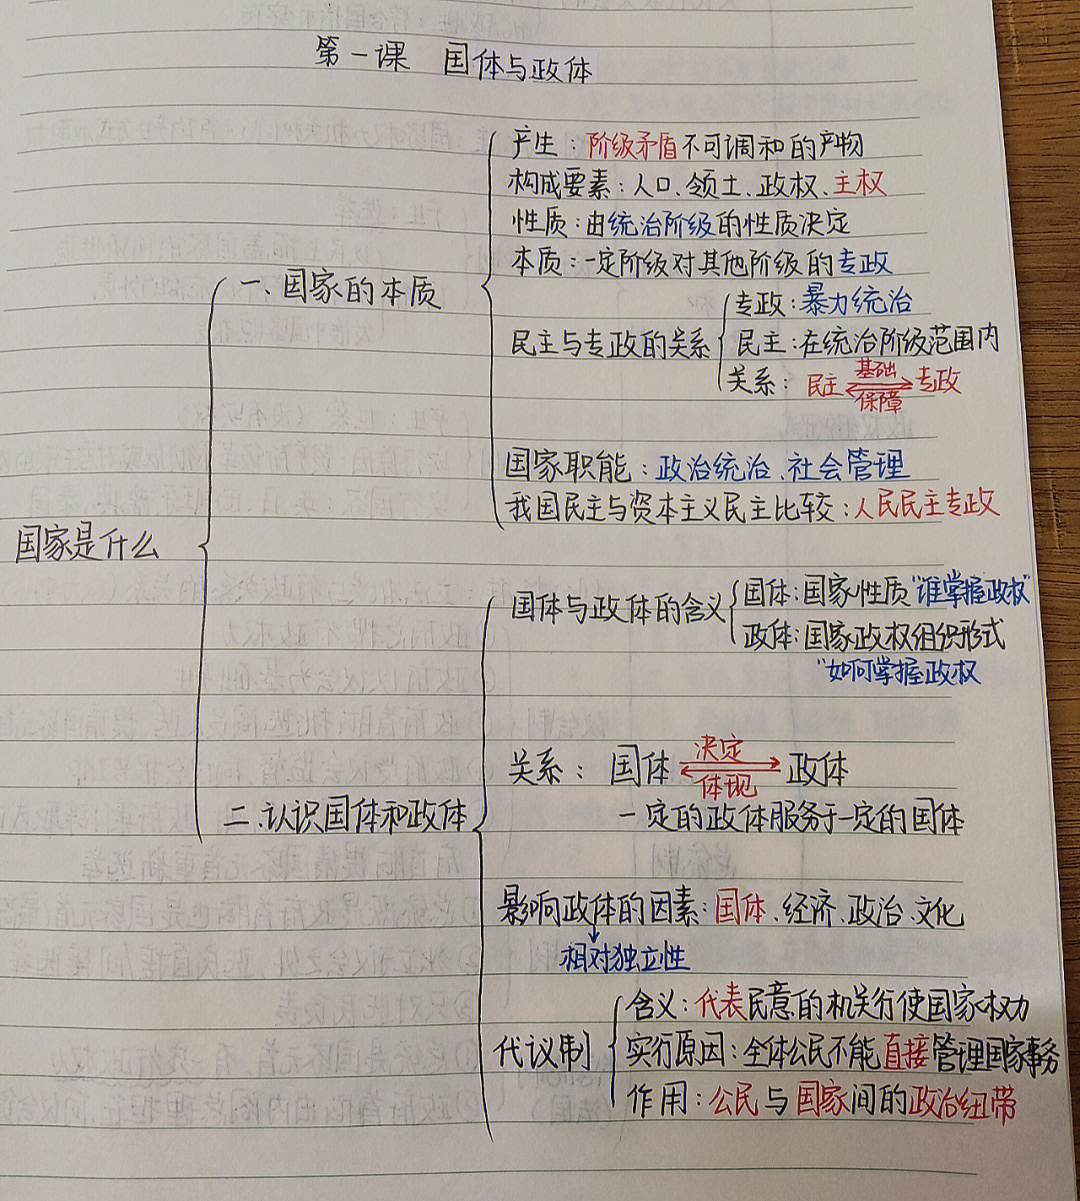 第一课 国体与政体
产生：阶级矛盾不可调和的产物
构成要素：人口、领土、政权、主权
性质：由统治阶级的性质决定
本质：一定阶级对其他阶级的专政
一、国家的本质
专政：暴力统治
民主与专政的关系
民主：在统治阶级范围内
关系：民主 基础 保障 专政
国家职能：政治统治、社会管理
我国民主与资本主义民主比较：人民民主专政
国家是什么
国体与政体的含义
国体：国家性质“谁掌握政权”
政体：国家政权组织形式
“如何掌握政权
关系：国体 决定 体现 政体
二、认识国体和政体
一定的政体服务于一定的国体
影响政体的因素：国体、经济、政治、文化
相对独立性
含义：代表民意的机关行使国家权力
代议制
实行原因：全体公民不能直接管理国家事务
作用：公民与国家间的政治纽带